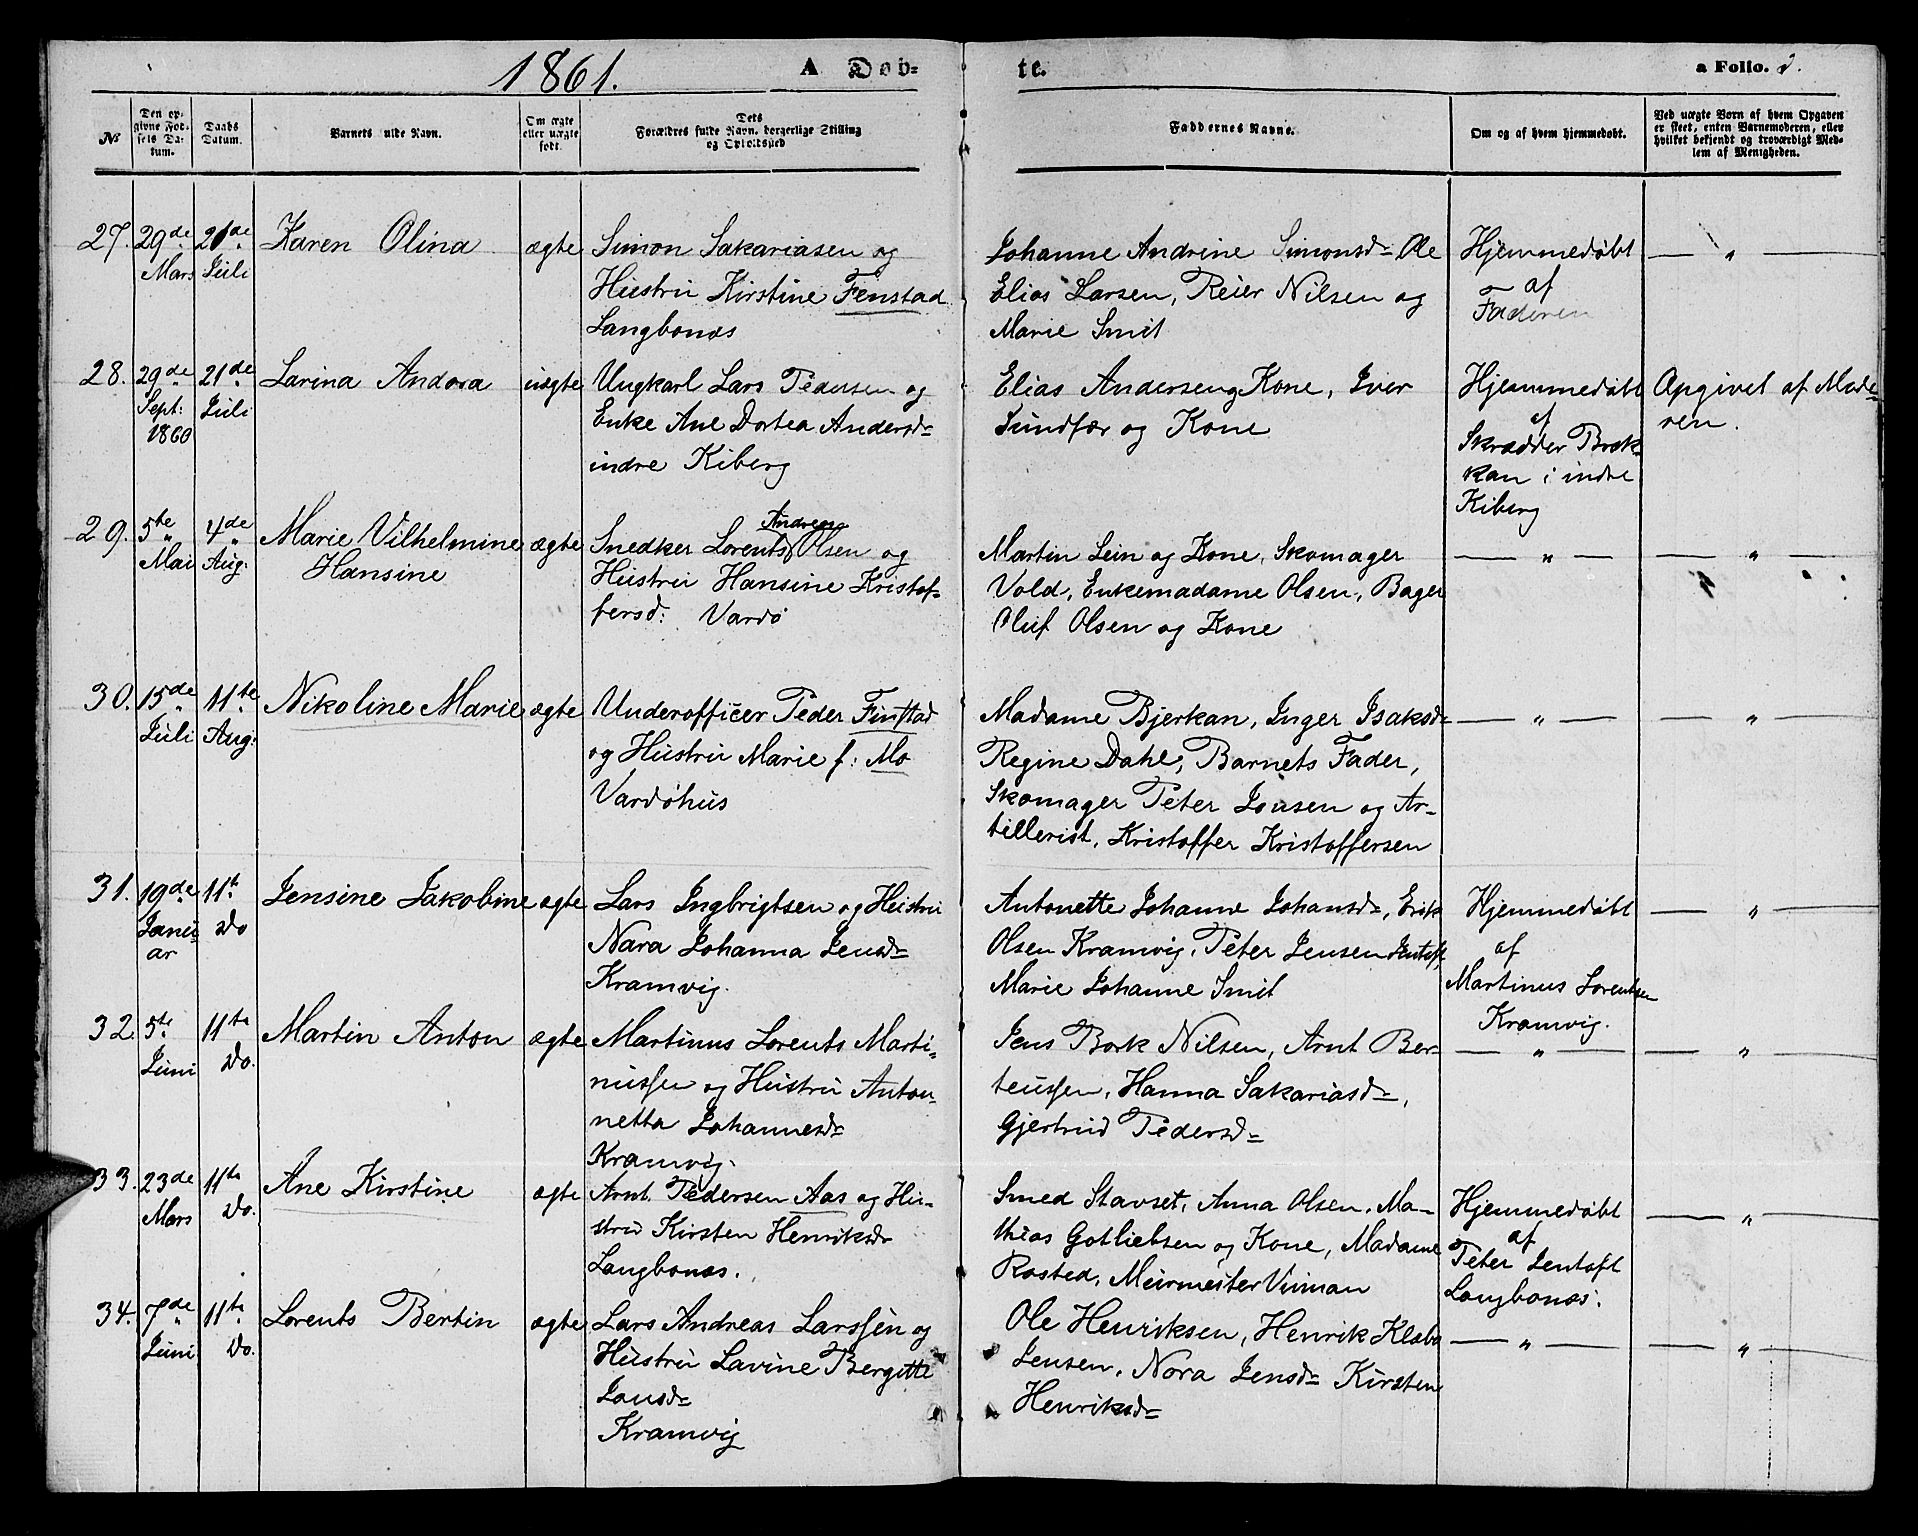 1861.
A Døb-
te.
a Folio. 2.
No
Den opgivne Fødsels Datum.
Daabs Datum.
Barnets fulde Navn.
Om ægte eller uægte født.
Dets Forældres fulde Navn, borgerlige Stilling og Opholdssted
Faddernes Navne.
Om og af hvem hjemmedøbt.
Ved uægte Børn af hvem Opgaven er skeet, enten Barnemoderen, eller hvilket bekjendt og troværdigt Medlem af Menigheden.
27. 29de Mars
21de Juli
Karen Olina
ægte
Simon Sakariasen og
Hustru Kirstine Fenstad
Langbonæs
Johanne Andrine Simonsd= Ole
Elias Larsen, Reier Nilsen og
Marie Smit
Hjemmedøbt
af
Faderen
— " —
28. 29de Sept: 1860
21de Juli
Larina Andora
uægte
Ungkarl Lars Pedersen og
Enke Ane Dortea Andersd=
indre Kiberg
Elias Andersen og Kone, Iver
Sundfær og Kone
Hjemmedøbt
af
Skrædder Bræk-
kan i indre
Kiberg
Opgivet af Mode-
ren.
29. 5te Mai
4de Aug:
Marie Vilhelmine
Hansine
ægte
Snedker Lorents Andreas Olsen og
Hustru Hansine Kristof-
fersd: Vardø
Martin Lein og Kone, Skomager
Vold, Enkemadame Olsen, Bager
Oluf Olsen og Kone
— " —
— " —
30. 15de Juli
11te Aug:
Nikoline Marie
ægte
Underofficer Peder Finstad
og Hustru Marie f: Mo
Vardøhus
Madame Bjerkan, Inger Isaksd=
Regine Dahl, Barnets Fader,
Skomager Peter Jonsen og Ar-
tillerist, Kristoffer Kristoffersen
— " —
— " —
31. 19de Janu-
ar
11te Do
Jensine Jakobine
ægte
Lars Ingbrigtsen og Hustru
Nara Johanna Jensd=
Kramvig.
Antonette Johanne Johansd=, Erik
Olsen Kramvig, Peter Jensen Jentoft,
Marie Johanne Smit
Hjemmedøbt
af
Martinus Lorentsen
Kramvig.
— " —
32. 5te Juni
11te Do.
Martin Anton
ægte
Martinus Lorents Marti-
nussen og Hustru Anton-
netta Johannesd=
Kramvig.
Jens Bork Nilsen, Arnt Ber-
teussen, Hanna Sakariasd=,
Gjertrud Pedersd=
— " —
— " —
33. 23de Mars
11te Do.
Ane Kirstine
ægte
Arnt Pedersen Aas og Hu-
stru Kirsten Henriksd=
Langbonæs.
Smed Stavset, Anna Olsen, Ma-
thias Gotliebsen og Kone, Madame
Rosted, Meurmester Vinman
Hjemmedøbt
af
Peter Jentoft
Langbonæs.
— " —
34. 7de Juni
11te Do.
Lorents Bertin
ægte
Lars Andreas Larssen og
Hustru Lavine Bergitte
Jonsd=
Kramvig
Ole Henriksen, Henrik Klæbo
Jensen, Nora Jensd= Kirsten
Henriksd=
— " —
— " —